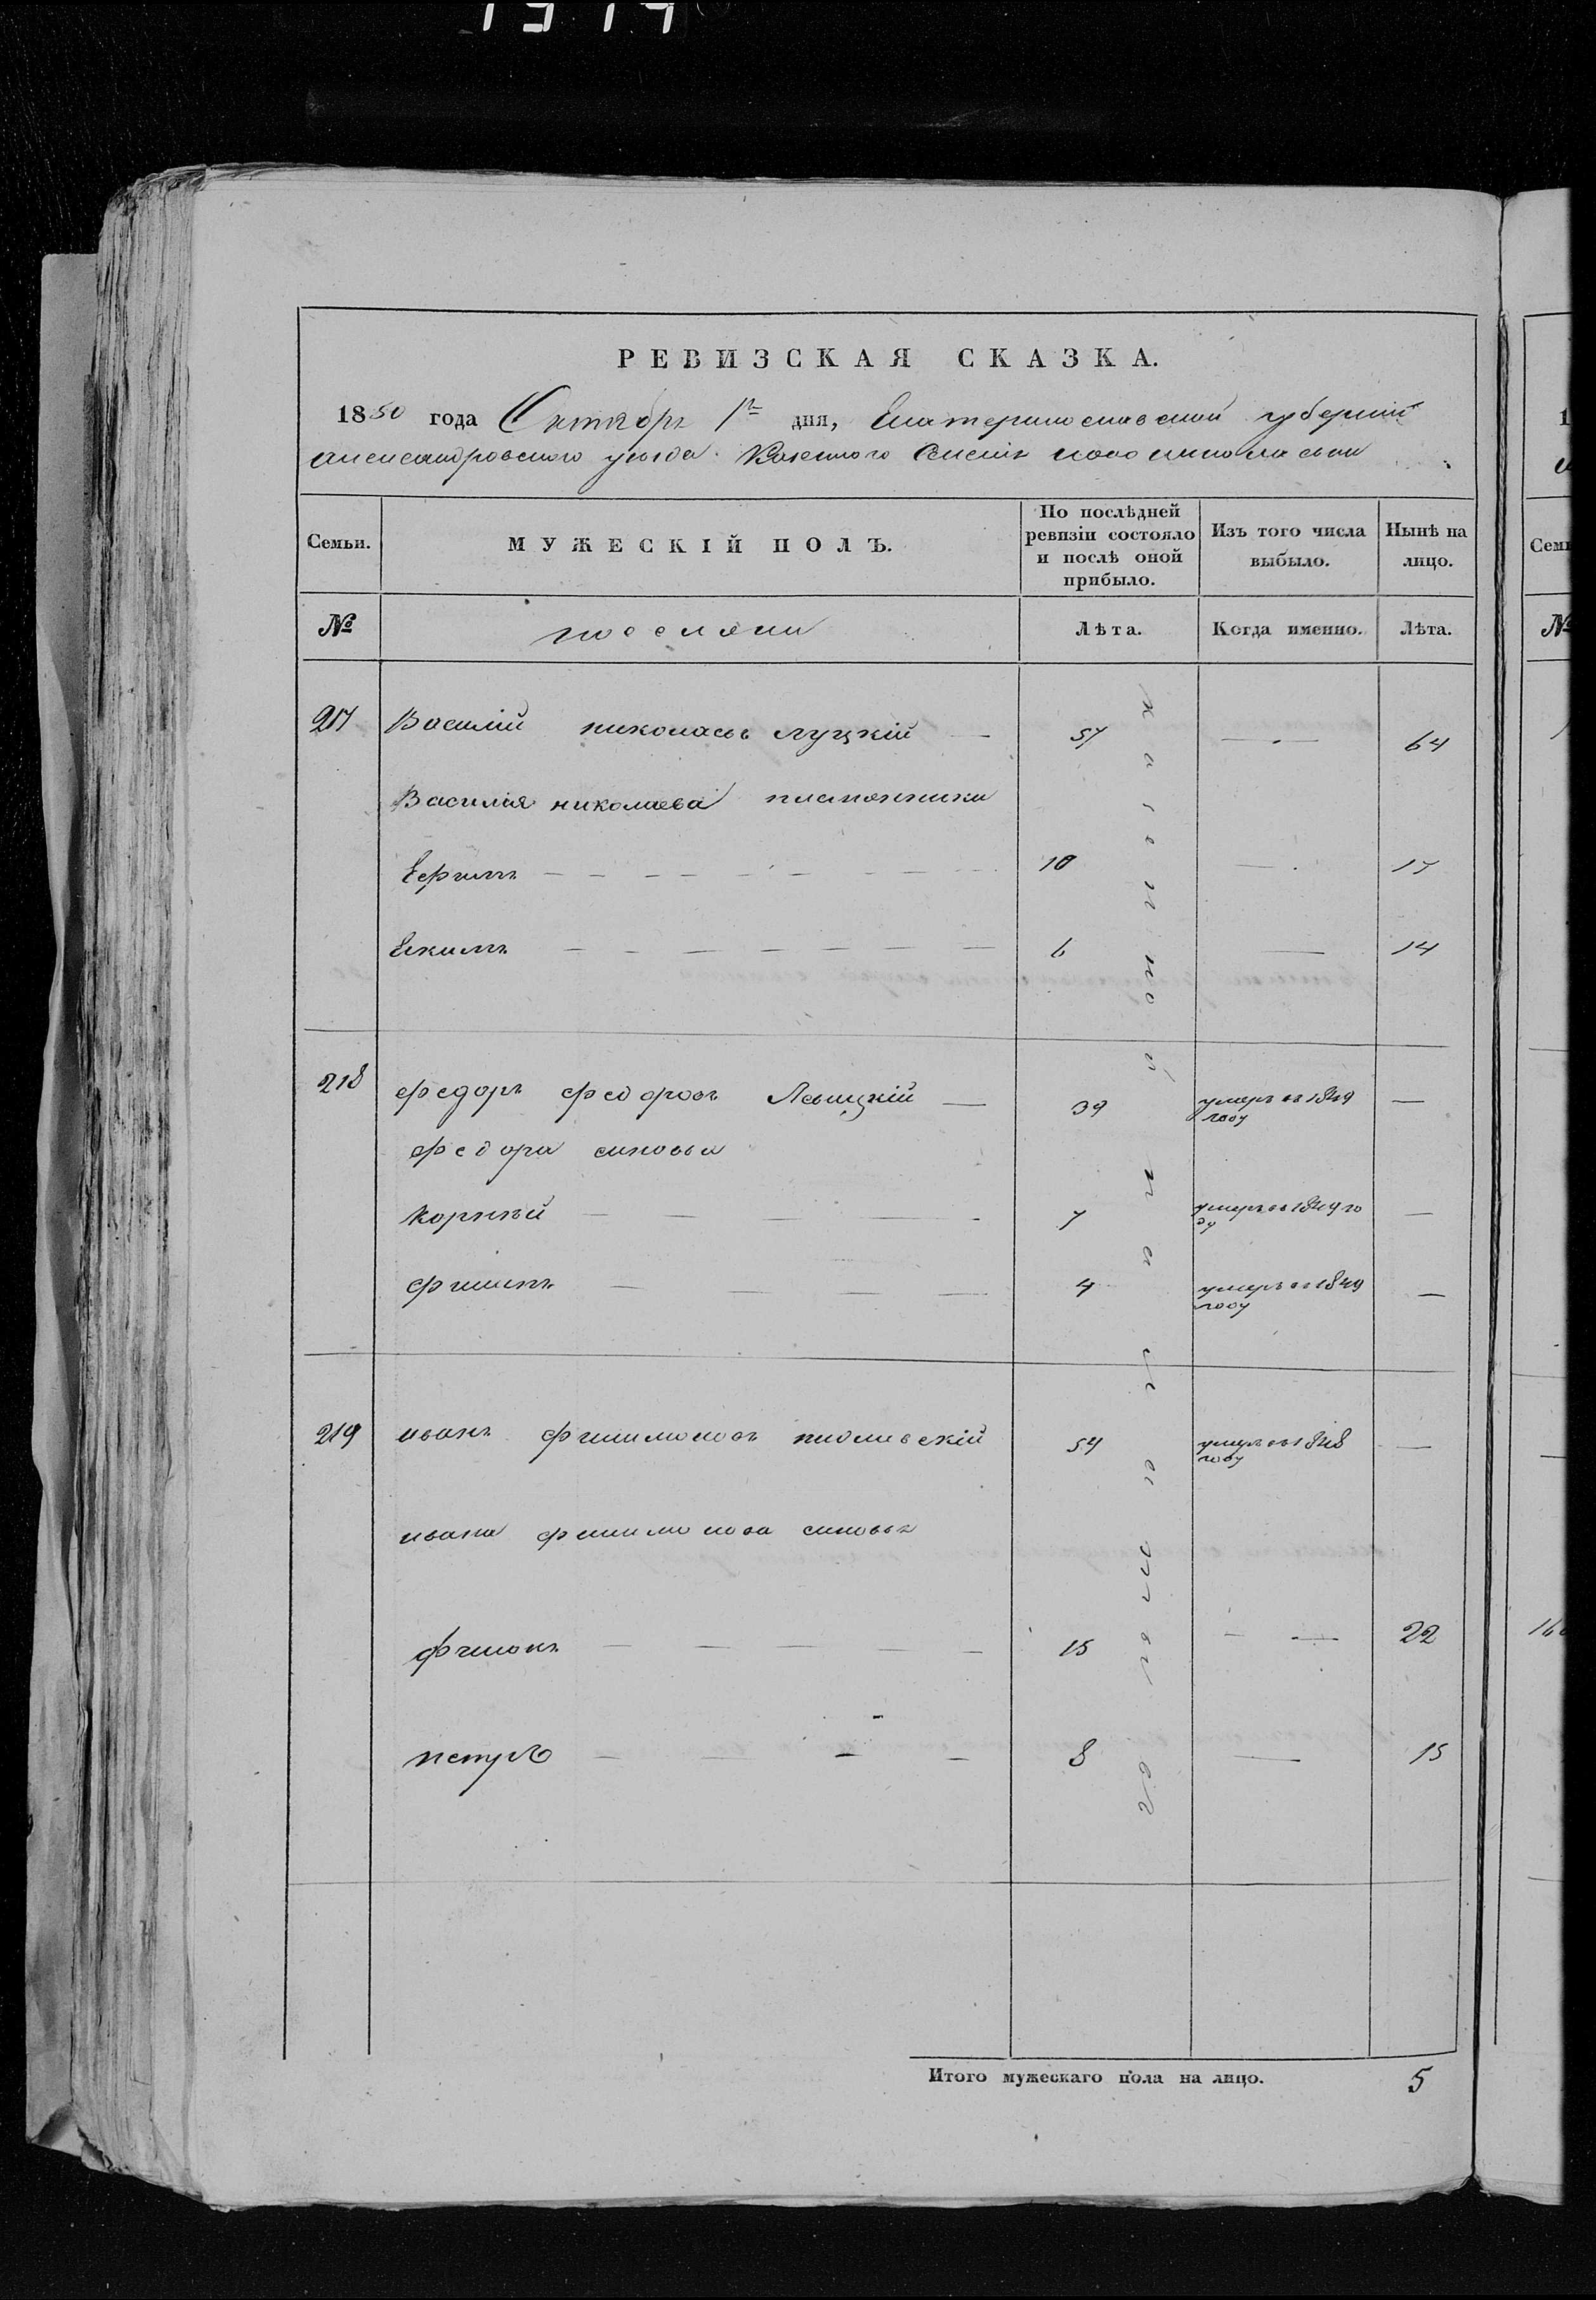 РЕВИЗСКАЯ СКАЗКА.
1850 года Октября 1го дня, Екатеринославской губернии
Александровского уезда Казенного Селения новониколаевки
Семьи.
МУЖЕСКІЙ ПОЛЪ.
По послѣдней ревизіи состояло и послѣ оной прибыло.
Изъ того числа выбыло.
Нынѣ на лицо.
№
поселяни
Лѣта.
Когда именно.
Лѣта.
217 Василій николаевъ луцкій — 57 — 64
Василия николаева племянники
Ефимъ — 10 — 17
Екимъ — 6 — 14
218 Федоръ Федоровъ Левицкій — 39 умеръ въ 1849 году —
Федора синовья
Корнѣй — 7 умеръ въ 1849 году —
Филипъ — 4 умеръ въ 1849 году —
219 иванъ Филимоновъ 54 умеръ въ 1848 году —
ивана филимонова синовья
Филонъ — 15 — 22
петръ — 8 — 15
Итого мужескаго пола на лицо. 5